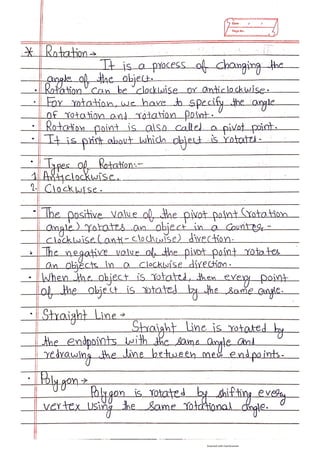 Date
Page No.
* Rotation →
It is a process of changing the
angle of the object.
• Rotation can be clockwise or anticlockwise.
• For rotation, we have to specify the angle
of rotation and rotation point.
• Rotation point is also called a pivot point.
• It is print about which object is rotated.
• Types of Rotation:-
1. Anticlockwise.
2. Clockwise.
- The positive value of the pivot point (rotation
angle) rotates an object in a counter-
clockwise (anti-clockwise) direction.
• The negative value of the pivot point rotates
an objects in a clockwise direction.
• When the object is rotated, then every point
of the object is rotated by the same angle.
• Straight Line →
Straight Line is rotated by
the endpoints with the same angle and
redrawing the line between new endpoints.
• Polygon →
Polygon is rotated by shifting every
vertex using the same rotational angle.